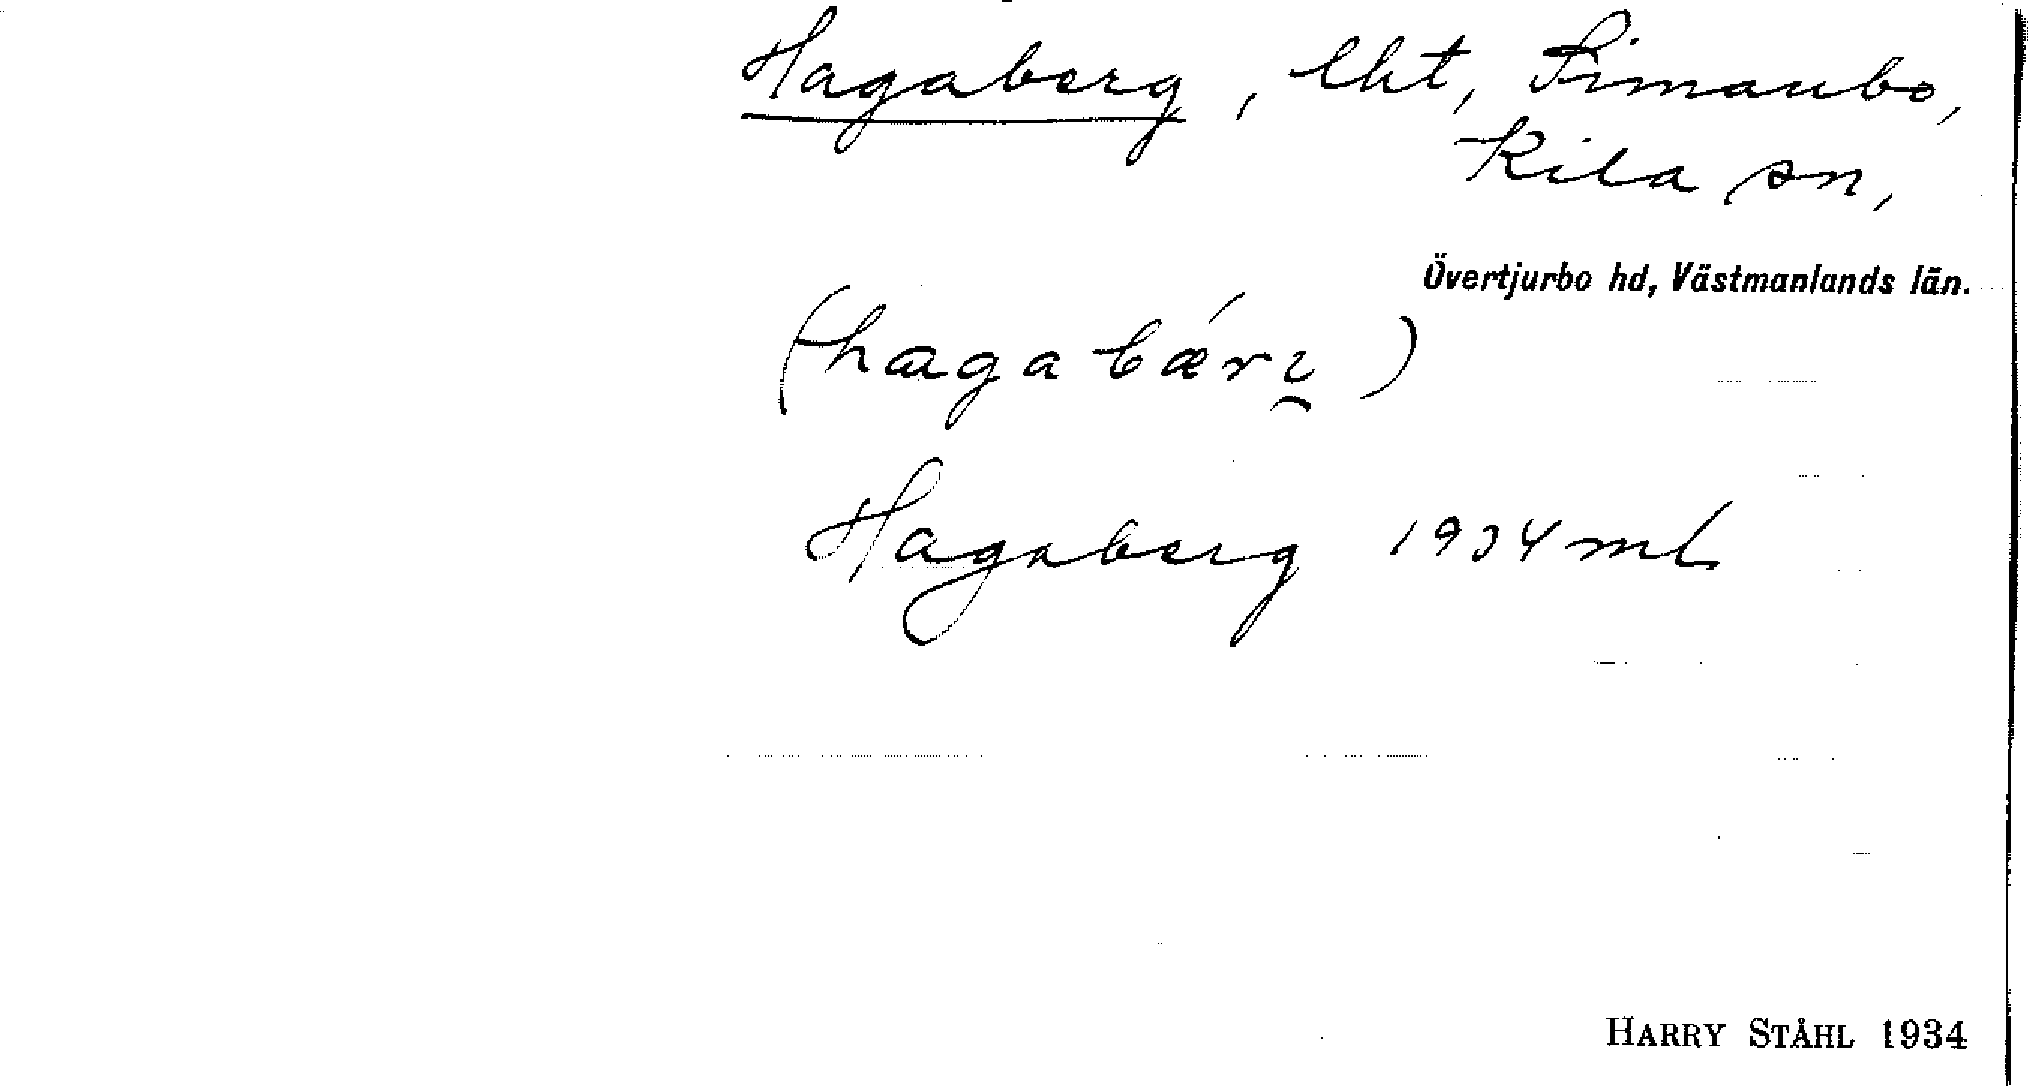 Hagaberg, lht, Simanbo,
Kila sn,
Övertjurbo hd, Västmanlands län.
(hagabǽrı̯)
Hagaberg 1934 ml
HARRY STÅHL 1934